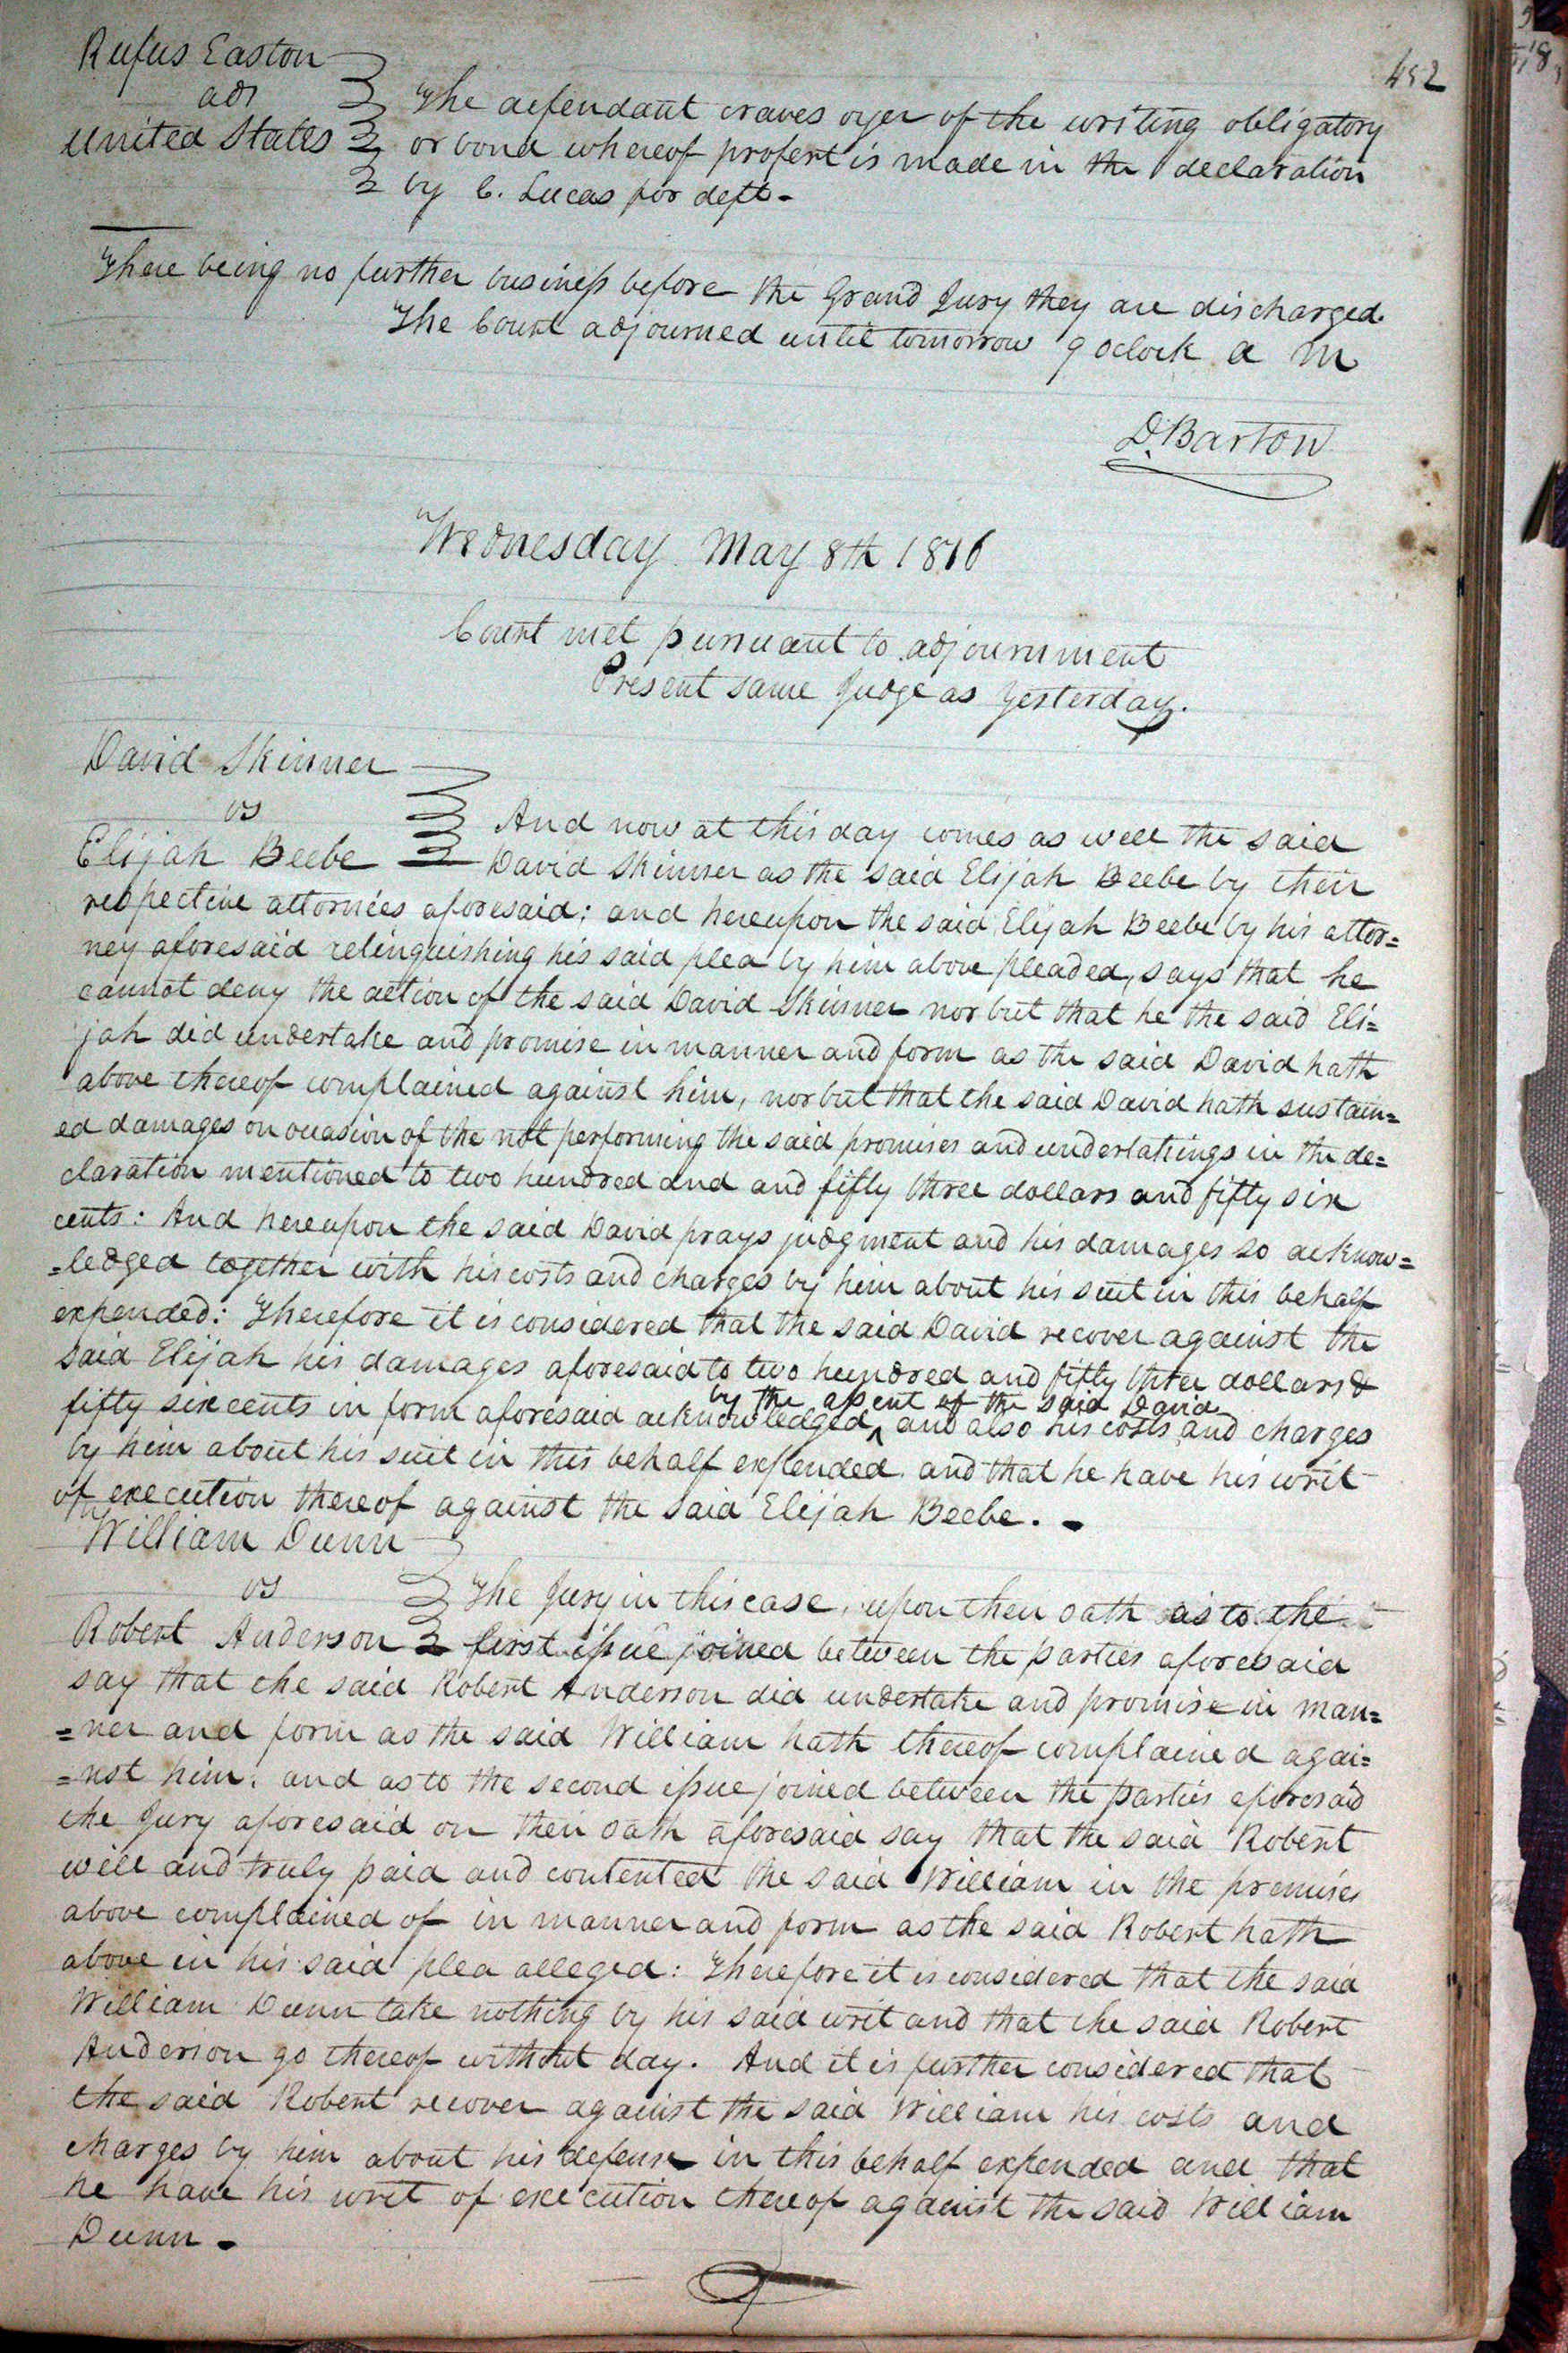 452
Rufus Easton
ads
United States
The defendant craves oyer of the writing obligatory
or bond whereof profert is made in the declaration
by C. Lucas for deft.
There being no further business before the Grand Jury they are discharged.
The Court adjourned until tomorrow 9 oclock a m
D. Barton
Wednesday May 8th 1816
Court met pursuant to adjournment
Present same Judge as yesterday.
David Skinner
vs
Elijah Beebe
And now at this day comes as well the said
David Skinner as the said Elijah Beebe by their
respective attornies aforesaid; and hereupon the said Elijah Beebe by his attor=
ney aforesaid relinquishing his said plea by him above pleaded, says that he
cannot deny the action of the said David Skinner nor but that he the said Eli=
jah did undertake and promise in manner and form as the said David hath
above thereof complained against him, nor but that the said David hath sustain=
ed damages on occasion of the not performing the said promises and undertakings in the de=
claration mentioned to two hundred and and fifty three dollars and fifty six
cents: And hereupon the said David prays judgment and his damages so acknow=
=ledged together with his costs and charges by him about his suit in this behalf
expended: Therefore it is considered that the said David recover against the
said Elijah his damages aforesaid to two hundred and fifty three dollars &
by the assent of the said David
fifty six cents in form aforesaid acknowledged, and also his costs and charges
by him about his suit in this behalf expended. and that he have his writ
of execution thereof against the said Elijah Beebe.
William Dunn
vs
Robert Anderson
The Jury in this case, upon their oath as to the
first issue joined between the parties aforesaid
say that the said Robert Anderson did undertake and promise in man=
=ner and form as the said William hath thereof complained agai=
=nst him: and as to the second issue joined between the parties aforesaid
the Jury aforesaid on their oath aforesaid say that the said Robert
well and truly paid and contented the said William in the premises
above complained of in manner and form as the said Robert hath
above in his said plea alleged: Therefore it is considered that the said
William Dunn take nothing by his said writ and that the said Robert
Anderson go thereof without day. And it is further considered that
the said Robert recover against the said William his costs and
charges by him about his defense in this behalf expended and that
he have his writ of execution thereof against the said William
Dunn.